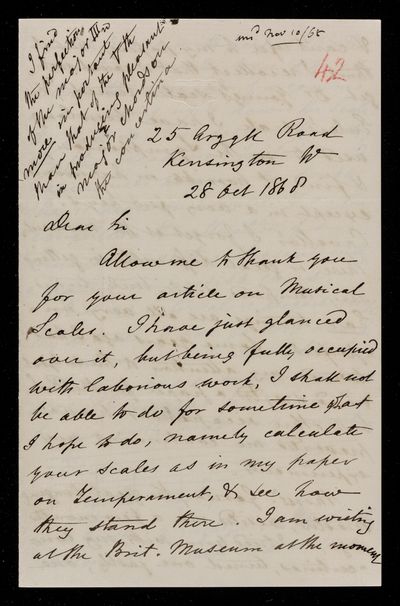 I find
the perfection
of the major IIIrd
more important
than that of the Vth
in producing pleasant
major chords on
the concertina
Nov 10/68
42
25 Argyll Road
Kensington W
28 Oct 1868
Dear Sir
Allow me to thank you
for your article on Musical
Scales. I have just glanced
over it, but being fully occupied
with laborious work, I shall not
be able to do for sometime what
I hope to do, namely calculate
your scales as in my paper
on Temperament, & see how
they stand there. I am writing
at the Brit. Museum at the moment